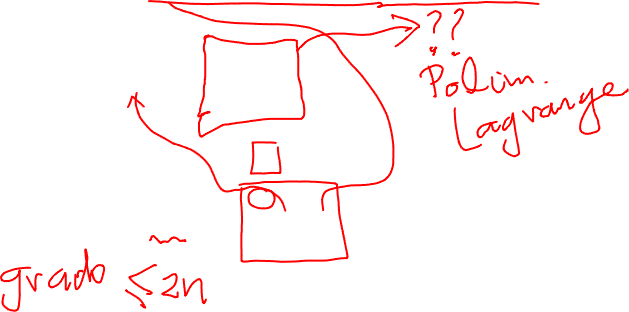 ??
Polim.
Lagrange
grado ≤ 2n